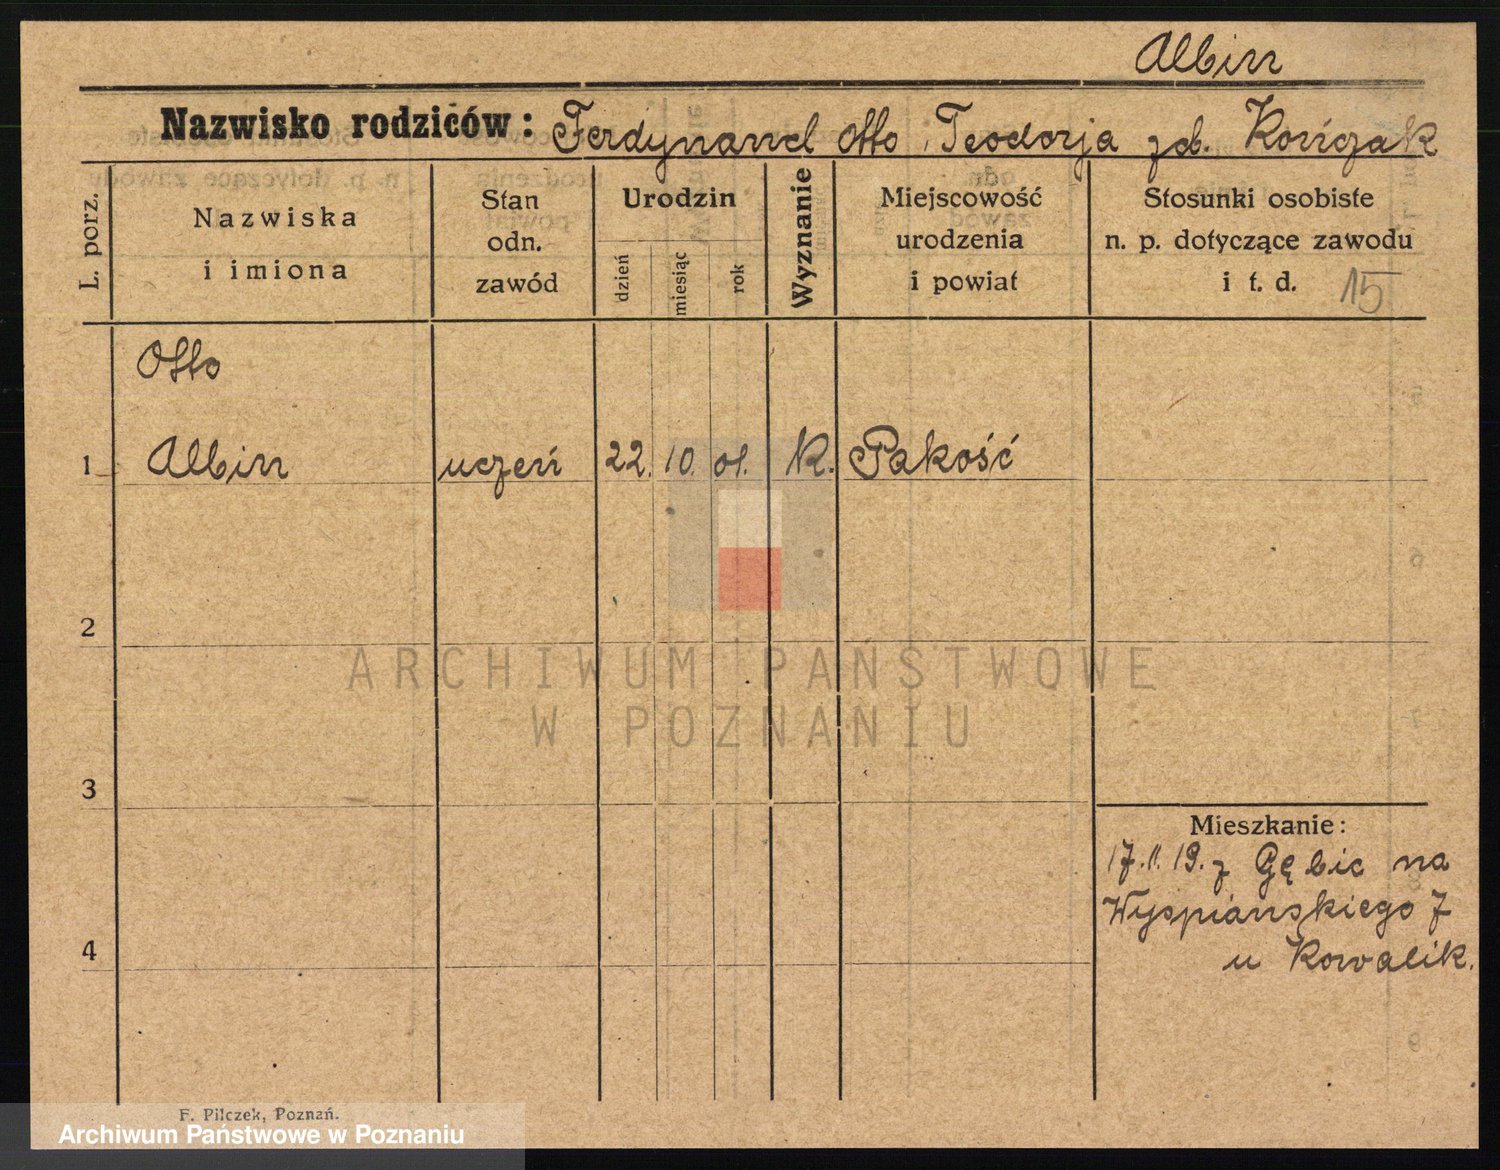 Albin
Nazwisko rodziców: Ferdynand Otto, Teodorja zd. Kończak
L. porz.
Nazwiska
i imiona
Stan
odn.
zawód
Urodzin
dzień
miesiąc
rok
Wyznanie
Miejscowość
urodzenia
i powiat
Stosunki osobiste
n. p. dotyczące zawodu
i t. d.
15
Otto
1 Albin uczeń 22. 10. 01. K. Pakość
2
ARCHIWUM PAŃSTWOWE
W POZNANIU
3
Mieszkanie:
17.11.19. z Gębic na
Wyspiańskiego 7
u Kowalik.
4
F. Pilczek, Poznań.
Archiwum Państwowe w Poznaniu